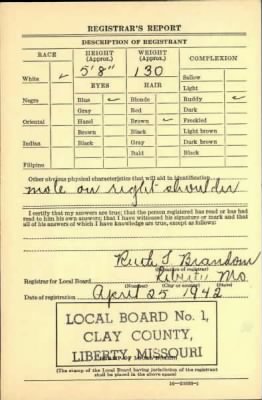 REGISTRAR'S REPORT
DESCRIPTION OF REGISTRANT
RACE
HEIGHT (Approx.)
WEIGHT (Approx.)
COMPLEXION
White ✓ 5'8" 130 Sallow
EYES HAIR Light
Negro Blue ✓ Blonde Ruddy ✓
Gray Red Dark
Oriental Hazel Brown ✓ Freckled
Brown Black Light brown
Indian Black Gray Dark brown
Bald Black
Filipino
Other obvious physical characteristics that will aid in identification
mole on right shoulder
I certify that my answers are true; that the person registered has read or has had
read to him his own answers; that I have witnessed his signature or mark and that
all of his answers of which I have knowledge are true, except as follows:
Ruth L Brandom
(Signature of registrar)
Registrar for Local Board Liberty Mo
(Number) (City or county) (State)
Date of registration April 25 1942
LOCAL BOARD No. 1,
CLAY COUNTY,
LIBERTY, MISSOURI
(The stamp of the Local Board having jurisdiction of the registrant
shall be placed in the above space)